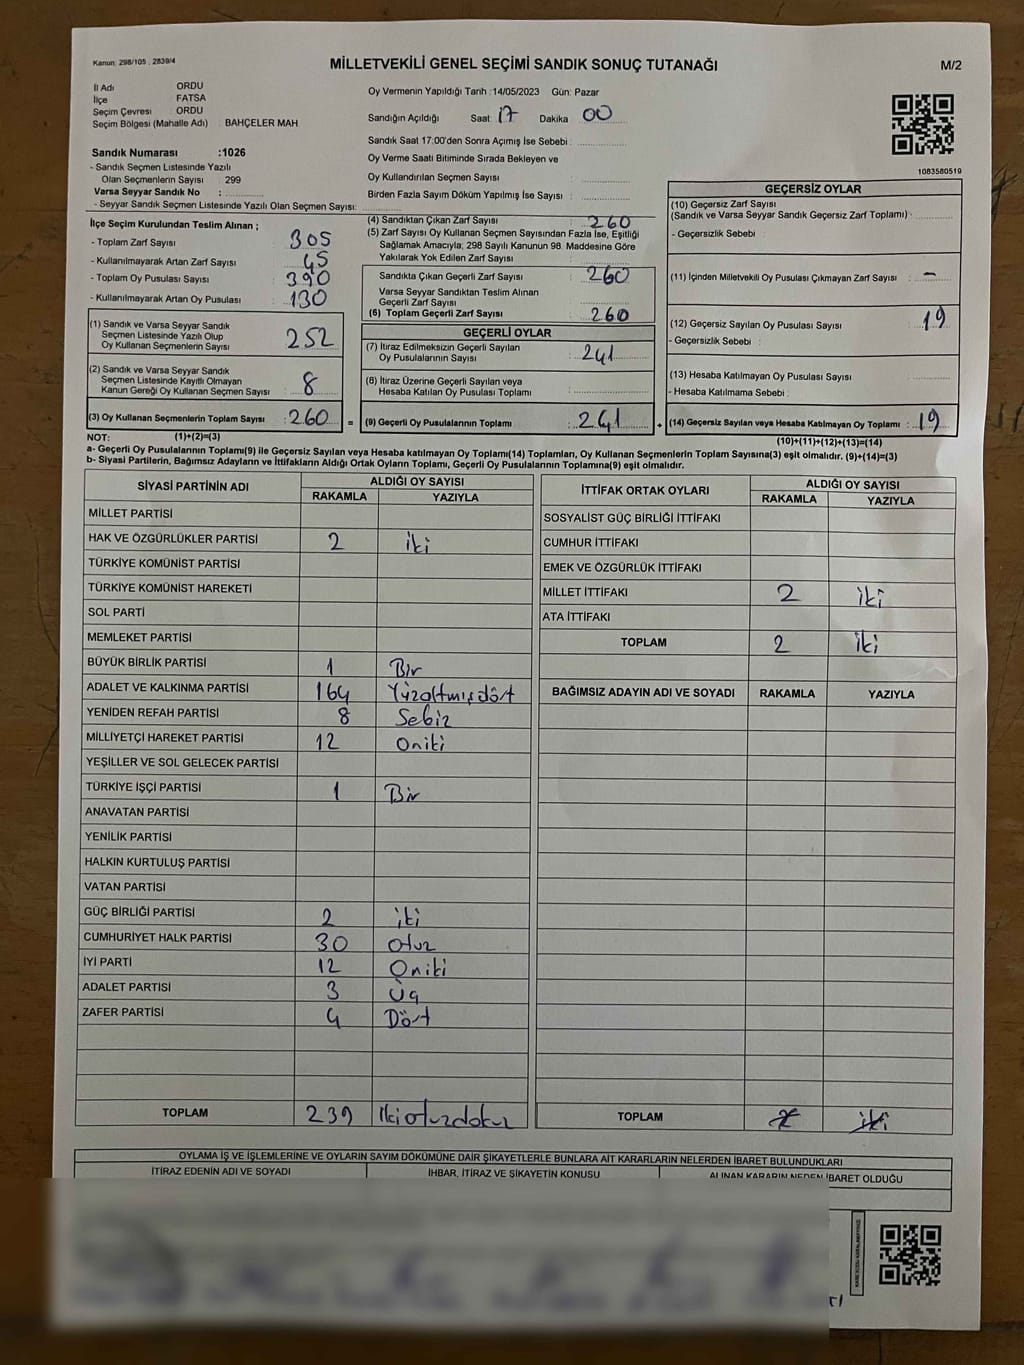 Kanun: 298/105 , 2839/4
MİLLETVEKİLİ GENEL SEÇİMİ SANDIK SONUÇ TUTANAĞI
M/2
İl Adı ORDU
İlçe FATSA
Seçim Çevresi ORDU
Seçim Bölgesi (Mahalle Adı) : BAHÇELER MAH
Sandık Numarası :1026
- Sandık Seçmen Listesinde Yazılı
Olan Seçmenlerin Sayısı : 299
Varsa Seyyar Sandık No :
- Seyyar Sandık Seçmen Listesinde Yazılı Olan Seçmen Sayısı:
Oy Vermenin Yapıldığı Tarih :14/05/2023 Gün: Pazar
Sandığın Açıldığı Saat: 17 Dakika 00
Sandık Saat 17:00'den Sonra Açımış İse Sebebi :
Oy Verme Saati Bitiminde Sırada Bekleyen ve
Oy Kullandırılan Seçmen Sayısı :
Birden Fazla Sayım Döküm Yapılmış İse Sayısı :
1083580519
İlçe Seçim Kurulundan Teslim Alınan ;
- Toplam Zarf Sayısı : 305
- Kullanılmayarak Artan Zarf Sayısı : 45
- Toplam Oy Pusulası Sayısı : 390
- Kullanılmayarak Artan Oy Pusulası : 130
(1) Sandık ve Varsa Seyyar Sandık
Seçmen Listesinde Yazılı Olup
Oy Kullanan Seçmenlerin Sayısı : 252
(2) Sandık ve Varsa Seyyar Sandık
Seçmen Listesinde Kayıtlı Olmayan
Kanun Gereği Oy Kullanan Seçmen Sayısı : 8
(3) Oy Kullanan Seçmenlerin Toplam Sayısı : 260
(4) Sandıktan Çıkan Zarf Sayısı : 260
(5) Zarf Sayısı Oy Kullanan Seçmen Sayısından Fazla İse, Eşitliği
Sağlamak Amacıyla, 298 Sayılı Kanunun 98. Maddesine Göre
Yakılarak Yok Edilen Zarf Sayısı :
Sandıkta Çıkan Geçerli Zarf Sayısı : 260
Varsa Seyyar Sandıktan Teslim Alınan
Geçerli Zarf Sayısı :
(6) Toplam Geçerli Zarf Sayısı : 260
GEÇERLİ OYLAR
(7) İtiraz Edilmeksizin Geçerli Sayılan
Oy Pusulalarının Sayısı : 241
(8) İtiraz Üzerine Geçerli Sayılan veya
Hesaba Katılan Oy Pusulaları Toplamı :
= (9) Geçerli Oy Pusulalarının Toplamı : 241
GEÇERSİZ OYLAR
(10) Geçersiz Zarf Sayısı
(Sandık ve Varsa Seyyar Sandık Geçersiz Zarf Toplamı) :
- Geçersizlik Sebebi :
(11) İçinden Milletvekili Oy Pusulası Çıkmayan Zarf Sayısı : -
(12) Geçersiz Sayılan Oy Pusulası Sayısı : 19
- Geçersizlik Sebebi :
(13) Hesaba Katılmayan Oy Pusulası Sayısı :
- Hesaba Katılmama Sebebi :
+ (14) Geçersiz Sayılan veya Hesaba Katılmayan Oy Toplamı : 19
NOT: (1)+(2)=(3)
(10)+(11)+(12)+(13)=(14)
a- Geçerli Oy Pusulalarının Toplamı(9) ile Geçersiz Sayılan veya Hesaba katılmayan Oy Toplamı(14) Toplamları, Oy Kullanan Seçmenlerin Toplam Sayısına(3) eşit olmalıdır. (9)+(14)=(3)
b- Siyasi Partilerin, Bağımsız Adayların ve İttifakların Aldığı Ortak Oyların Toplamı, Geçerli Oy Pusulalarının Toplamına(9) eşit olmalıdır.
SİYASİ PARTİNİN ADI
ALDIĞI OY SAYISI
RAKAMLA YAZIYLA
MİLLET PARTİSİ
HAK VE ÖZGÜRLÜKLER PARTİSİ 2 iki
TÜRKİYE KOMÜNİST PARTİSİ
TÜRKİYE KOMÜNİST HAREKETİ
SOL PARTİ
MEMLEKET PARTİSİ
BÜYÜK BİRLİK PARTİSİ 1 Bir
ADALET VE KALKINMA PARTİSİ 164 Yüzaltmışdört
YENİDEN REFAH PARTİSİ 8 Sekiz
MİLLİYETÇİ HAREKET PARTİSİ 12 Oniki
YEŞİLLER VE SOL GELECEK PARTİSİ
TÜRKİYE İŞÇİ PARTİSİ 1 Bir
ANAVATAN PARTİSİ
YENİLİK PARTİSİ
HALKIN KURTULUŞ PARTİSİ
VATAN PARTİSİ
GÜÇ BİRLİĞİ PARTİSİ 2 iki
CUMHURİYET HALK PARTİSİ 30 Otuz
İYİ PARTİ 12 Oniki
ADALET PARTİSİ 3 Üç
ZAFER PARTİSİ 4 Dört
TOPLAM 239 İkiotuzdokuz
İTTİFAK ORTAK OYLARI
ALDIĞI OY SAYISI
RAKAMLA YAZIYLA
SOSYALİST GÜÇ BİRLİĞİ İTTİFAKI
CUMHUR İTTİFAKI
EMEK VE ÖZGÜRLÜK İTTİFAKI
MİLLET İTTİFAKI 2 iki
ATA İTTİFAKI
TOPLAM 2 iki
BAĞIMSIZ ADAYIN ADI VE SOYADI RAKAMLA YAZIYLA
TOPLAM 2 iki
OYLAMA İŞ VE İŞLEMLERİNE VE OYLARIN SAYIM DÖKÜMÜNE DAİR ŞİKAYETLERLE BUNLARA AİT KARARLARIN NELERDEN İBARET BULUNDUKLARI
İTİRAZ EDENİN ADI VE SOYADI
İHBAR, İTİRAZ VE ŞİKAYETİN KONUSU
ALINAN KARARIN NEDEN İBARET OLDUĞU